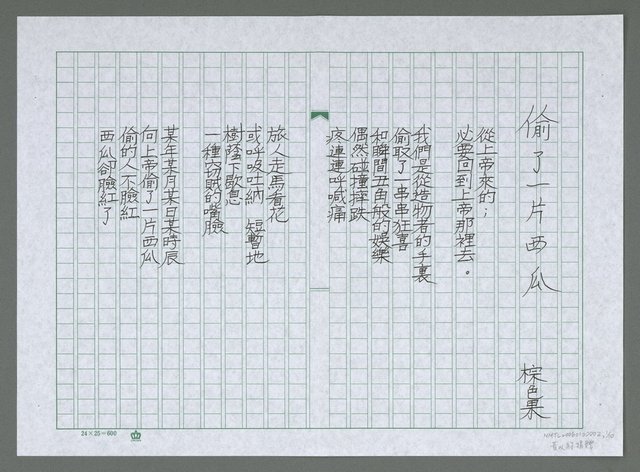 偷了一片西瓜
棕色果
從上帝來的；
必要回到上帝那裡去。
我們是從造物者的手裏
偷取了一串串狂喜
和瞬間丑角般的娛樂
偶然碰撞摔跌
疼連連呼喊痛
旅人走馬看花
或呼吸吐納 短暫地
樹蔭下歇息
一種竊賊的嘴臉
某年某月某日某時辰
向上帝偷了一片西瓜
偷的人不臉紅
西瓜卻臉紅了
24×25=600